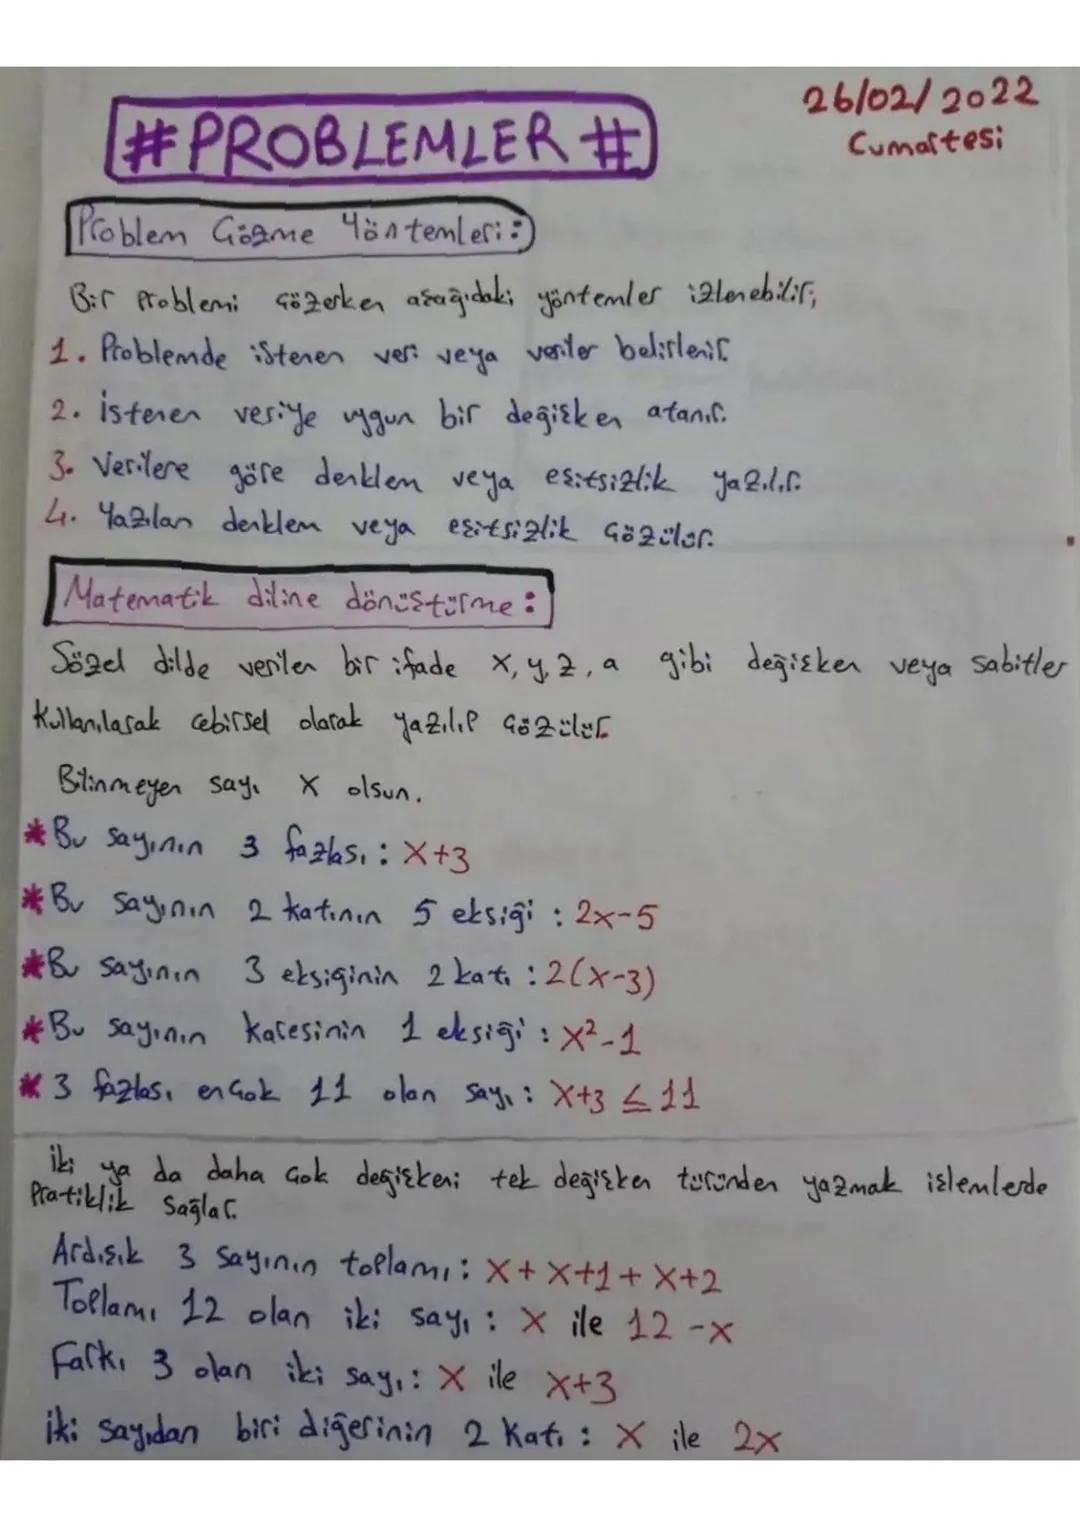 26/02/2022
Cumartesi
#PROBLEMLER#
Problem Çözme Yöntemleri:
Bir problemi çözerken aşağıdaki yöntemler izlenebilir;
1. Problemde istenen veri veya veriler belirlenir.
2. İstenen veriye uygun bir değişken atanır.
3. Verilere göre denklem veya eşitsizlik yazılır.
4. Yazılan denklem veya eşitsizlik çözülür.
Matematik diline dönüştürme:
Sözel dilde verilen bir ifade x, y, z, a gibi değişken veya sabitler
kullanılarak cebirsel olarak yazılıp çözülür.
Bilinmeyen sayı x olsun.
*Bu sayının 3 fazlası: x+3
*Bu sayının 2 katının 5 eksiği : 2x-5
*Bu sayının 3 eksiğinin 2 katı : 2(x-3)
*Bu sayının karesinin 1 eksiği : x²-1
*3 fazlası en çok 11 olan sayı : x+3 ≤ 11
iki ya da daha çok değişkeni tek değişken türünden yazmak işlemlerde
Pratiklik sağlar.
Ardışık 3 sayının toplamı : x+x+1+x+2
Toplamı 12 olan iki sayı : x ile 12-x
Farkı 3 olan iki sayı: x ile x+3
iki sayıdan biri diğerinin 2 katı : x ile 2x